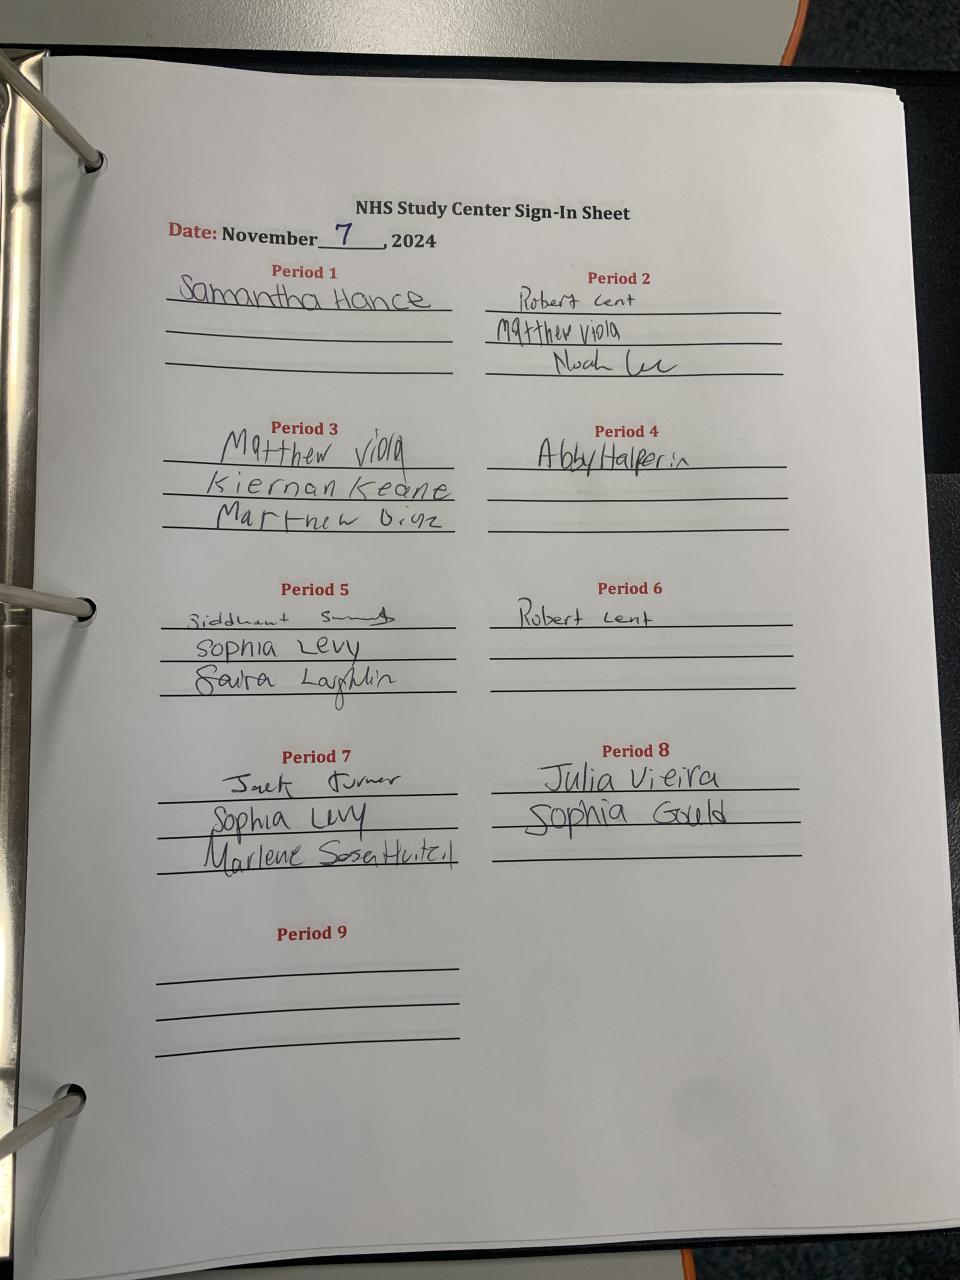 NHS Study Center Sign-In Sheet
Date: November 7, 2024
Period 1
Samantha Hance
Period 2
Robert Lent
Matthew Viola
Noah
Period 3
Matthew Viola
Kiernan Keane
Matthew
Period 4
Abby Halperin
Period 5
Siddhant
Sophia Levy
Saira Laghlin
Period 6
Robert Lent
Period 7
Jack Turner
Sophia Levy
Marlene Sosa
Period 8
Julia Vieira
Sophia Gould
Period 9